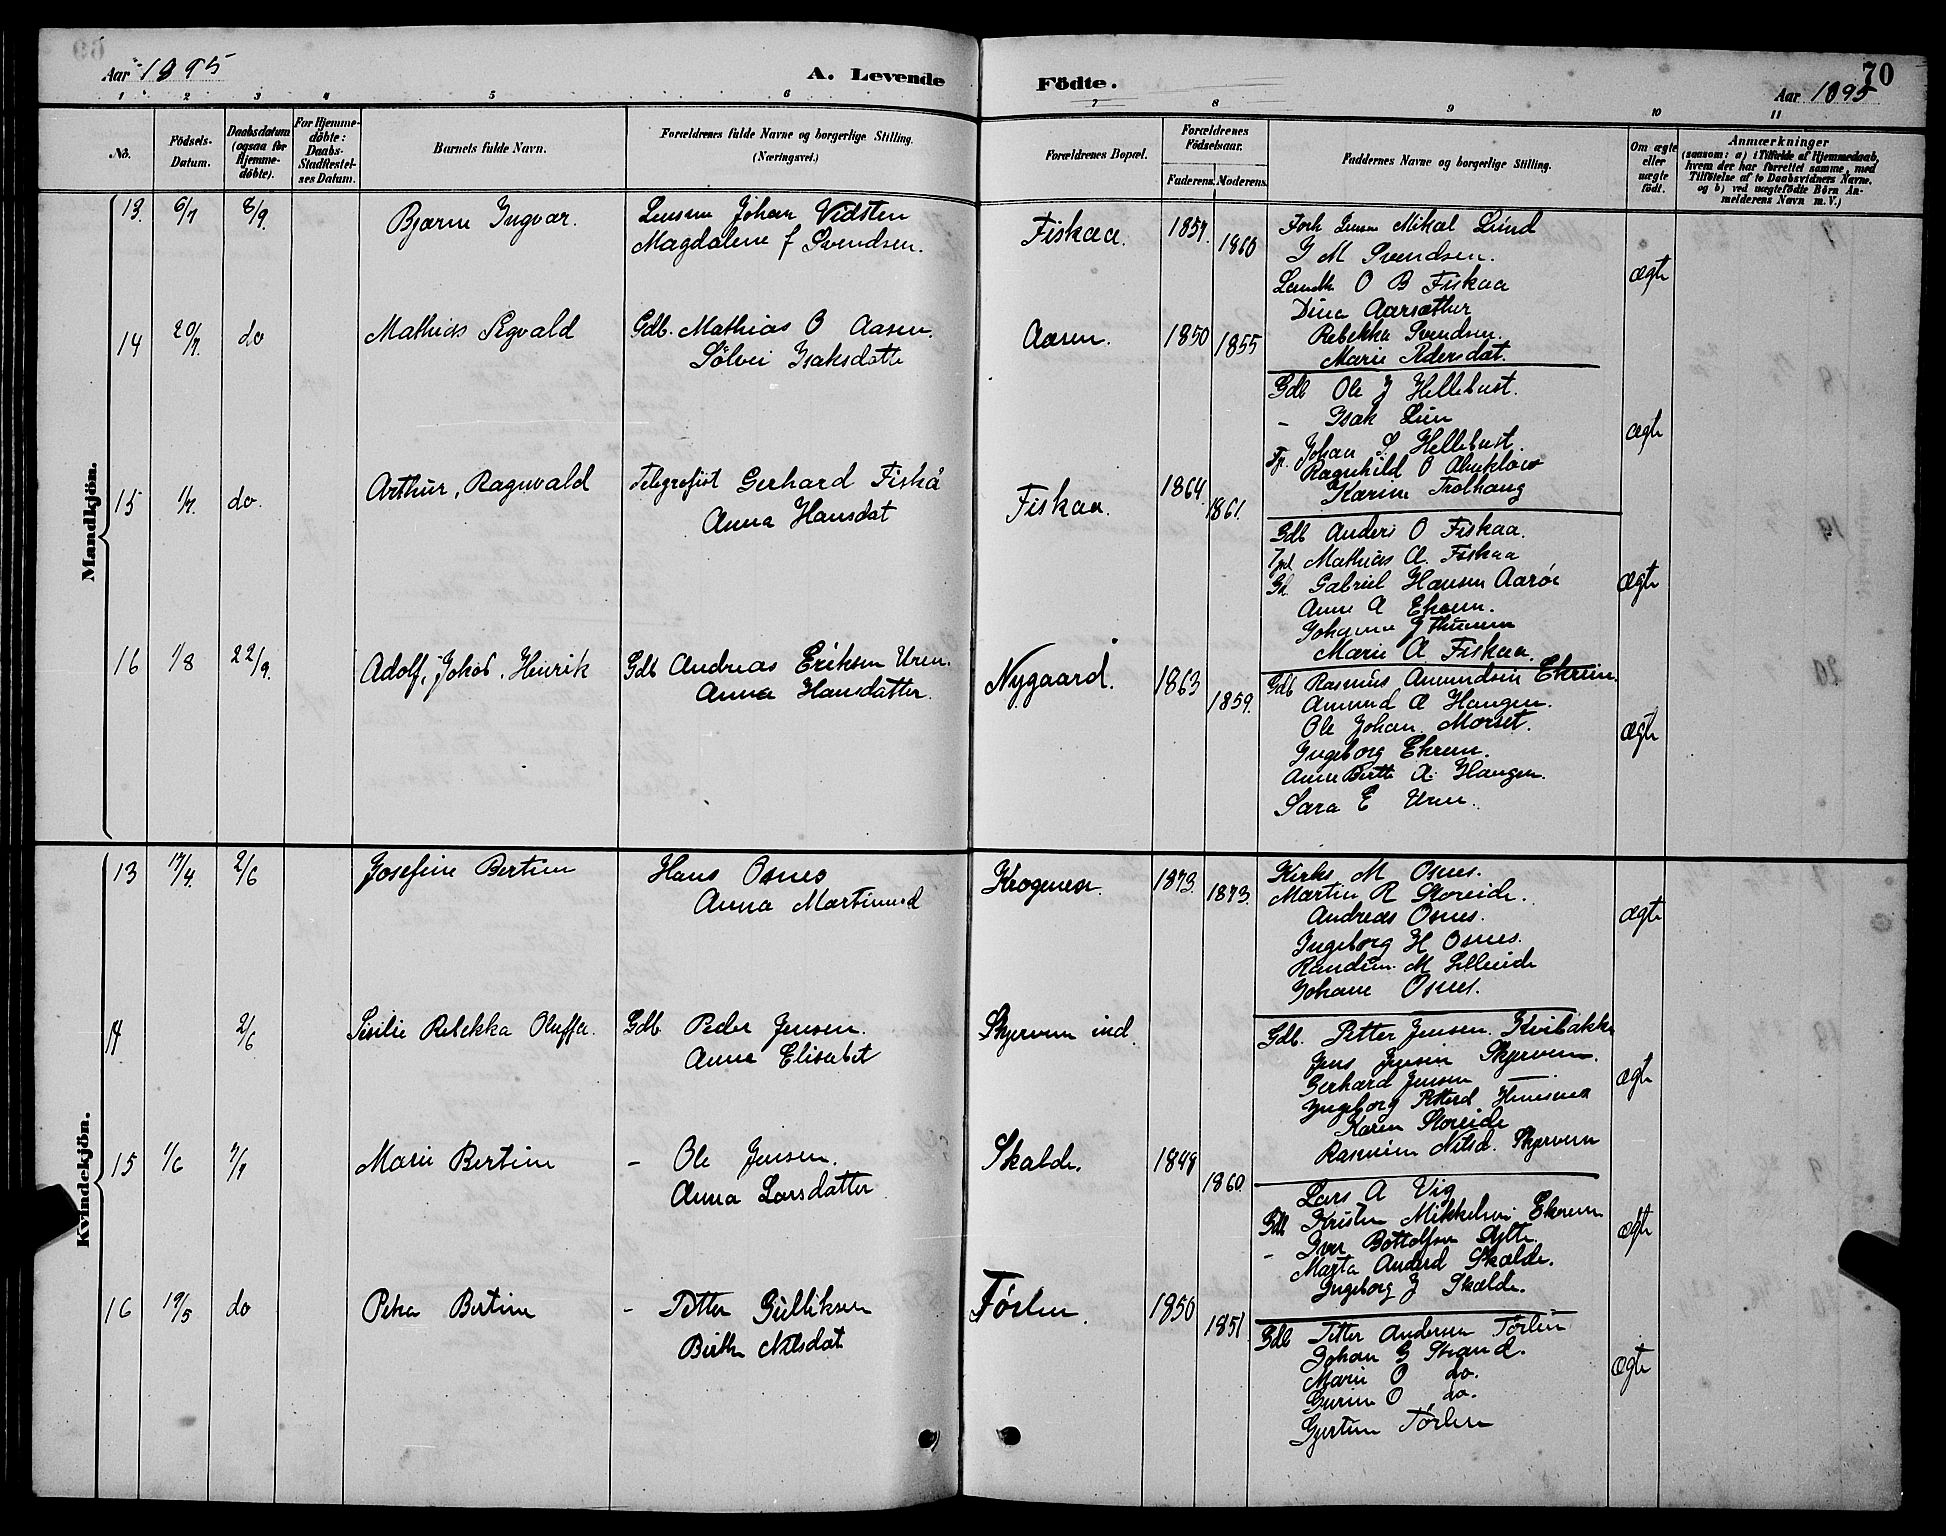 Aar 1895
A. Levende
Födte.
70
Aar 1895
1 2 3 4 5 6 7 8 9 10 11
No.
Födsels-Datum.
Daabsdatum (ogsaa for Hjemme-döbte).
For Hjemme-döbte: Daabs-Stadfæstel-ses Datum.
Barnets fulde Navn.
Forældrenes fulde Navne og borgerlige Stilling.
(Næringsvei.)
Forældrenes Bopæl.
Forældrenes Födselsaar.
Faderens. Moderens.
Faddernes Navne og borgerlige Stilling.
Om ægte eller uægte födt.
Anmærkninger
(saasom: a) i Tilfælde af Hjemmedaab, hvem der har forrettet samme, med Tilföielse af to Daabsvidners Navne, og b) ved uægtefödte Börn An-melderens Navn m. V.)
Mandkjön.
13. 6/7 8/9. Bjarne Ingvar.
Johan Vidsten
Magdalene f Svendsen.
Fiskaa. 1859. 1860
Mikal Lund
G M Svendsen.
O B Fiskaa
Dina Aarsæther
Rebekka Svendsen.
Marie Pedersdat.
ægte
14 20/7. do Mathias Sigvald
Gdb. Mathias O Aasen.
Sølvei Isaksdatte
Aasen. 1850 1855
Gdb Ole J Hellebust.
- Isak Lien
Johan S Hellebust
Ragnhild O
Karine Trolhaug
ægte
15 1/7. do. Arthur, Ragnvald
Telegrafist Gerhard Fiskå
Anna Hansdat
Fiskaa. 1864. 1861.
Gdb Anders O Fiskaa.
Mathias A. Fiskaa
Gabriel Hansen Aarø
Anne A Ekrem.
Johanne J
Marie A Fiskaa.
ægte
16 1/8 22/9. Adolf, Jokob, Henrik
Gdb Andreas Eriksen Uren.
Anna Hansdatter.
Nygaard. 1863 1859.
Gdb Rasmus Amundsen Ekrem.
Amund A Haugen.
Ole Johan Morset.
Ingeborg Ekrem.
Anne Berthe A. Haugen.
Sara E Uren.
ægte
Kvindekjön.
13 17/4. 2/6 Josefine Bertine
Hans Osnes
Anna Martinusd
Krogenes. 1873. 1873.
Kirks M Osnes.
Martin R Storeide.
Andreas Osnes.
Ingeborg H Osnes.
Randine M
Johane Osnes.
ægte
14 2/6 Sesilie Rebekka Oluffa.
Gdb Peder Jensen.
Anne Elisabet
Skjervem ind.
Gdb. Petter Jensen. Kvibakke
Jens Jensen Skjervem.
Gerhard Jensen —
Ingeborg Petterd
Karen Storeide
Rasmine Nilsd. Skjervem
ægte
15 1/6 7/7 Marie Bertine
- Ole Jensen.
Anna Larsdatter
Skalde. 1849 1860.
Lars A Vig
Gdb Kristen Mikkelsen Ekrem
- Iver Bottolfsen
Marta Andersd Skalde.
Ingeborg J Skalde.
ægte
16 19/5 do Petra Bertine
- Petter Gulliksen
Birthe Nilsdat
Tørlen. 1850 1851.
Gdb Petter Andersen Tørlen
Johan G Strand.
Marie O do.
Gurine O do.
Gjertine Tørlen
ægte